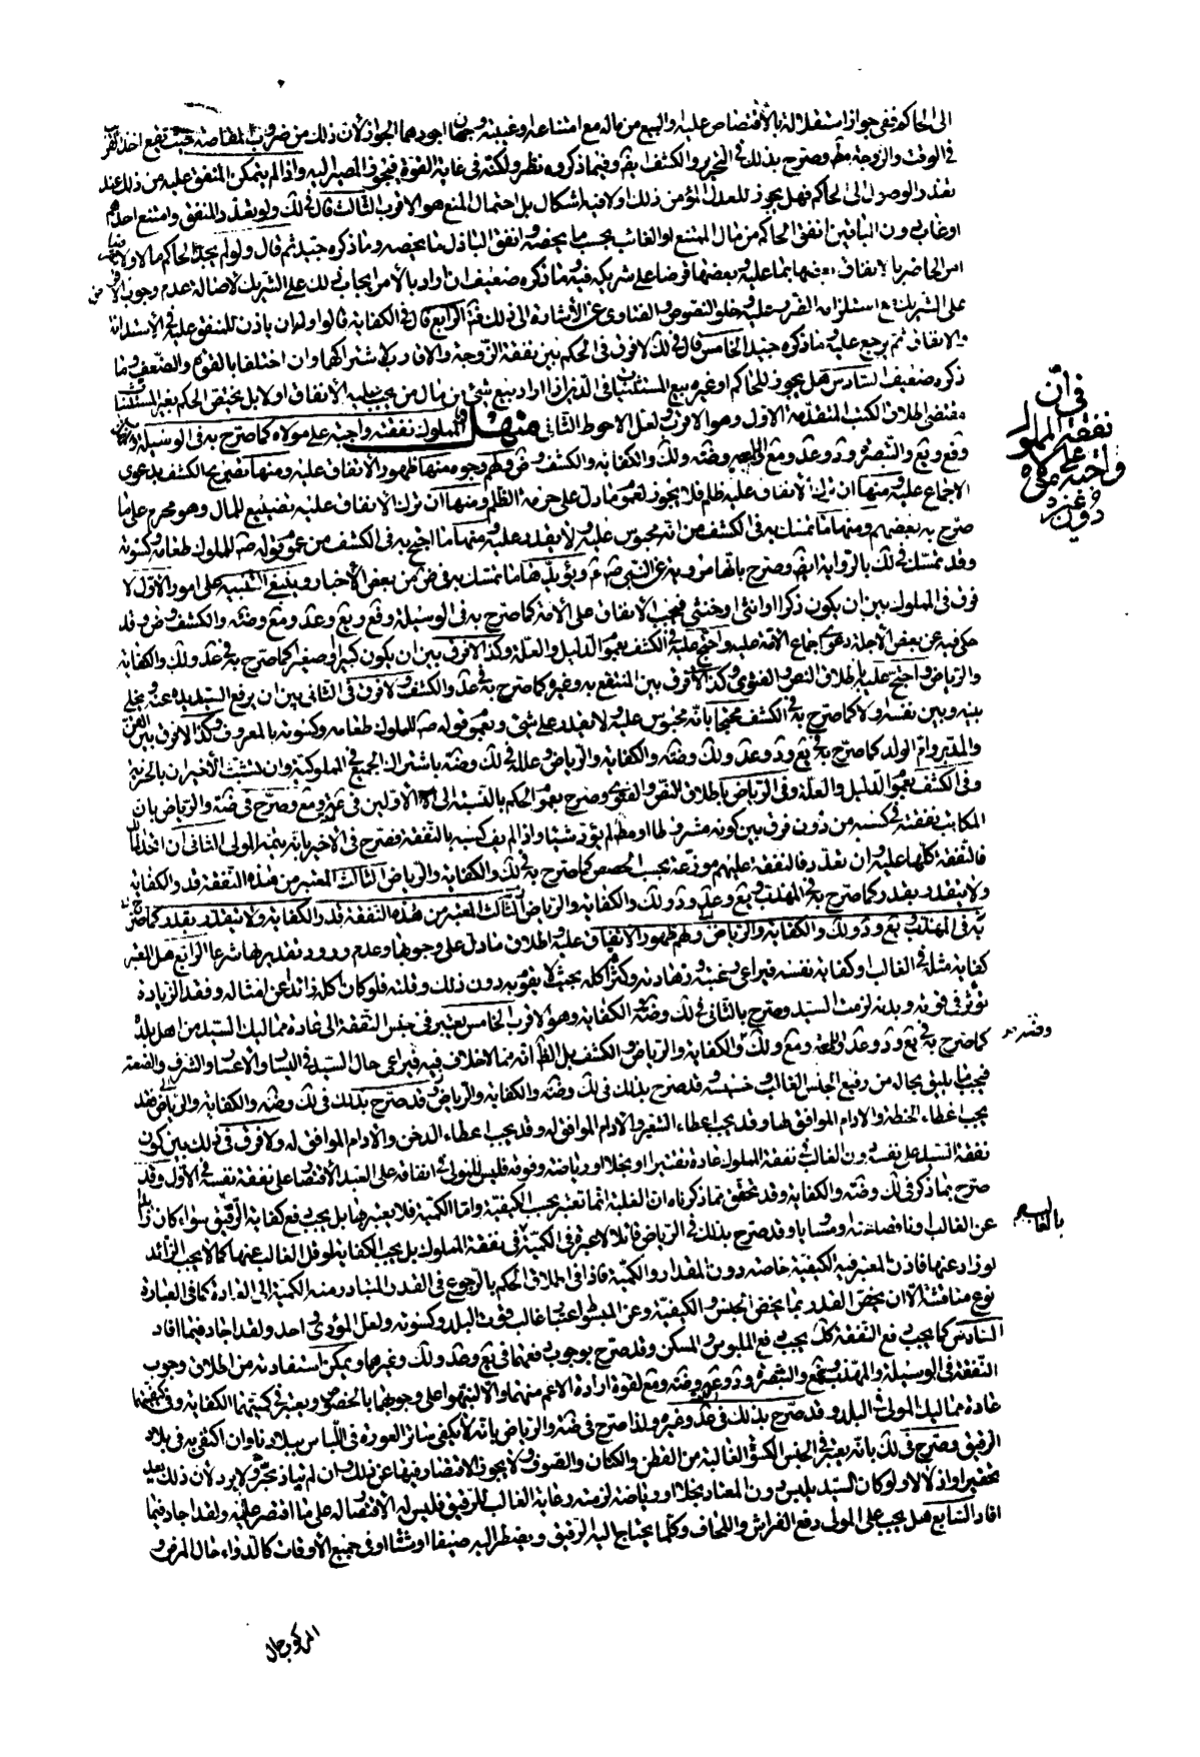 الى الحاكم ففى جواز استقلاله بالاقتصاص عليه والبيع من ماله مع امتناعه او غيبته وجهان اجودهما الجواز لان ذلك من ضروب المقاصة حيث تقع اخذ القريب
فى الوقت والزوجة مط وصرح بذلك فى التحرير والكشف ايضا وفيما ذكروه نظر ولكنه فى غاية القوة فيجوز المصير اليه واذا لم يتمكن المنفق عليه من ذلك عند
تعذر الوصول الى الحاكم فهل يجوز للعدل المؤمن ذلك اولا فيه اشكال بل احتمال المنع هو الاقرب الثالث قال فى لك ولو تعدد المنفق وامتنع احدهم
او غاب دون الباقين انفق الحاكم من مال الممتنع او الغائب بحسب ما يخصه وانفق الباذل ما يخصه وما ذكره جيد ثم قال ولو لم يجد الحاكم مالا
امر الحاضر بالانفاق بعضها بما عليه وبعضها قرضا على شريكه فيه وما ذكره ضعيف ان اراد بالامر ايجاب ذلك على الشريك لاصالة عدم وجوب
على الشريك مع استلزامه الضرر عليه وخلو النصوص والفتاوى عن الاشارة الى ذلك فت الرابع قال فى الكفاية قالوا ولو ان ياذن للمنفق عليه فى الاستدانة
والانفاق ثم يرجع عليه وما ذكره جيد الخامس قال فى لك لا فرق فى الحكم بين نفقة الزوجة والاقارب لاشتراكها وان اختلفا بالقوة والضعف وما
ذكره ضعيف السادس هل يجوز للحاكم او غيره بيع المستثنيات فى الدين اذا اراد بيع شئ من مال من يجب عليه الانفاق اولا بل يختص الحكم بغير المستثنيات
مقتضى اطلاق الكتب المتقدمة الاول وهو الاقرب ولعل الاحوط الثانى منهل المملوك نفقته واجبة على مولاه كما صرح به فى الوسيلة
وقع ويع والتبصرة ود وعد ومع اللمعة وضه ولك والكفاية والكشف وض ولهم وجوه منها ظهور الاتفاق عليه ومنها تصريح الكشف بدعوى
الاجماع عليه ومنها ان ترك الانفاق عليه ظلم فلا يجوز لعموم ما دل على حرمة الظلم ومنها ان ترك الانفاق عليه تضييع للمال وهو محرم على ما
صرح به بعضهم ومنها ما تمسك به فى الكشف من انه محبوس عليه ولا يقدر عليه ومنها ما احتج به فى الكشف من عموم قوله ص للمملوك طعامه وكسوته
وقد تمسك فى لك بالرواية ايضا وصرح بانها مروية عن النبى ص ويؤيدها ما تمسك به فى ض من بعض الاخبار وينبغى التنبيه على امور الاول لا
فرق فى المملوك بين ان يكون ذكرا او انثى او خنثى فيجب الانفاق على الامة كما صرح به فى الوسيلة وقع ويع وعد ومع وضه والكشف وض وقد
حكى فيه عن بعض الاجلة دعوى اجماع الامة عليه واحتج عليه فى الكشف بعموم الدليل والعلة وكذا لا فرق بين ان يكون كبيرا او صغيرا كما صرح به فى عد ولك والكفاية
والرياض واحتج عليه باطلاق النص والفتوى وكذا لا فرق بين المنتفع به وغيره كما صرح به فى عد والكشف ولا فرق فى الثانى بين ان يرفع السيد يده عنه ويخلى
بينه وبين نفسه اولا كما صرح به فى الكشف محتجا بانه محبوس عليه ولا يقدر على شئ وبعموم قوله ص للمملوك طعامه وكسوته بالمعروف وكذا لا فرق بين القن
والمدبر وام الولد كما صرح به فى يع ود وعد ولك وضه والكفاية والرياض وعلله فى لك وضه باشتراك الجميع فى المملوكية وان تشبث الاخيران بالحرية
وفى الكشف بعموم الدليل والعلة وفى الرياض باطلاق النص والفتوى وصرح بعموم الحكم بالنسبة الى الاولين فى عد ومع وصرح فى ضه والرياض بان
المكاتب نفقته فى كسبه من دون فرق بين كونه مشروطا او مط لم يؤد شيئا واذا لم يف كسبه بالنفقة وصرح فى الاخير بانه يتمه المولى الثانى ان اتحد المالك
فالنفقة كلها عليه وان تعدد فالنفقة عليهم موزعة بحسب الحصص كما صرح به فى لك والكفاية والرياض الثالث المعتبر من هذه النفقة قدر الكفاية
ولا يتقدر بقدر كما صرح به فى المهذب ويع وعد ود ولك والكفاية والرياض الثالث المعتبر من هذه النفقة قدر الكفاية ولا يتقدر بقدر كما صرح
به فى المهذب ويع ود ولك والكفاية والرياض ولهم ظهور الاتفاق عليه واطلاق ما دل على وجوبها وعدم ورود تقديرها شرعا الرابع هل المعتبر
كفاية مثله فى الغالب او كفاية نفسه فيراعى رغبته وزهادته وكثرة اكله بحيث لا يقوم بدون ذلك وقلته فلو كان اكله زائدا عن امثاله وفقد الزيادة
تؤثر فى قوته وبدنه لزمت السيد وصرح بالثانى فى لك وضه والكفاية وهو الاقرب الخامس يعتبر فى جنس النفقة الى عادة مماليك السيد من اهل بلده
كما صرح به فى يع ود وعد واللمعة ومع ولك والكفاية والرياض والكشف بل الظ انه مما لا خلاف فيه فيراعى حال السيد فى اليسار والاعسار والشرف والضعة
فيجب ما يليق بحاله من رفيع الجنس الغالب وخسيسه قد صرح بذلك فى لك وضه والكفاية والرياض وقد صرح بذلك فى لك وضه والكفاية والرياض فقد
يجب اعطاء الحنطة والادام الموافق لها وقد يجب اعطاء الشعير والادام الموافق له وقد يجب اعطاء الدخن والادام الموافق له ولا فرق فى ذلك بين كون
نفقة السيد على نفسه دون الغالب فى نفقة المملوك عادة تقتيرا او بخلا او رياضة وفوقه فليس للمولى فى انفاقه على العبد الاقتصار على نفقة نفسه فى الاول وقد
صرح بما ذكر فى لك وضه والكفاية وقد تحقق مما ذكرناه ان الغلبة انما تعتبر بحسب الكيفية واما الكمية فلا يعتبر فيها بل يجب دفع كفاية الرقيق سواء كان زائدا
عن الغالب او ناقصا عنه او مساويا وقد صرح بذلك فى الرياض قائلا لا عبرة فى الكمية فى نفقة المملوك بل يجب الكفاية لو قل الغالب عنها كما لا يجب الزائد
لو زاد عنها فاذن المعتبر فيه الكيفية خاصة دون المقدار والكمية فاذا فى اطلاق الحكم بالرجوع فى القدر المتبادر منه الكمية الى العادة كما فى العبارة
نوع مناقشة الا ان يخص القدر بما يخص الجنس والكيفية وعن المبسوط اعتبار غالب قوت البلد وكسوته ولعل المؤدى احد ولقد اجاد فيما افاد
السادس كما يجب دفع النفقة كك يجب دفع الملبوس والمسكن وقد صرح بوجوب دفعهما فى يع وعد ولك وغيرها ويمكن استفادته من اطلاق وجوب
النفقة فى الوسيلة والمهذب ويع والتبصرة ود وعد وضه ومع لقوة ارادة الاعم منهما والا لنبهوا على وجوبهما بالخصوص ويعتبر فى كميتهما الكفاية وفى كيفيتهما
عادة مماليك المولى فى البلد وقد صرح بذلك فى عد وغيره ولذا صرح فى ضه والرياض بانه لا يكفى ساتر العورة فى اللباس ببلادنا وان اكتفى به فى بلاد
الرقيق وصرح فى لك بانه يعتبر فى الجنس الكسوة الغالبة من القطن والكتان والصوف ولا يجوز الاقتصار فيها عن ذلك وان لم يتاذ بحر ولا برد لان ذلك يعد
تحقيرا واذلالا ولو كان السيد يلبس دون المعتاد بخلا او رياضة لزمته رعاية الغالب للرقيق فليس له الاقتصار له على ما اقتصر عليه ولقد اجاد فيما
افاد السابع هل يجب على المولى دفع الفراش واللحاف وكلما يحتاج اليه الرقيق ويضطر اليه صيفا او شتاء او فى جميع الاوقات كالدواء حال المرض و
فى ان
نفقة المملوك
واجبة على مولاه
دون غيره
وضه
بالغالب
المركوب حال